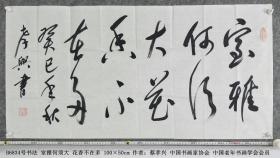 室雅
何须
大花
香不
在多
癸巳金秋
孝兴书
B6834号书法 室雅何须大 花香不在多 100×50cm 作者：蔡孝兴 中国书画家协会 中国老年书画学会会员